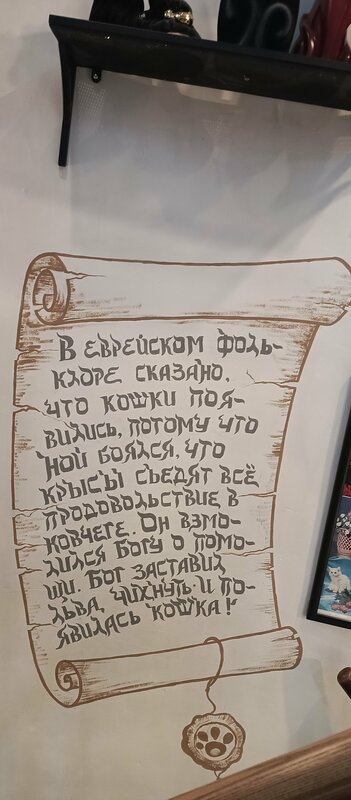 В ЕВРЕЙСКОМ ФОЛЬ-
КЛОРЕ СКАЗАНО,
ЧТО КОШКИ ПОЯ-
ВИЛИСЬ, ПОТОМУ ЧТО
НОЙ БОЯЛСЯ, ЧТО
КРЫСЫ СЪЕДЯТ ВСЁ
ПРОДОВОЛЬСТВИЕ В
КОВЧЕГЕ. ОН ВЗМО-
ЛИЛСЯ БОГУ О ПОМО-
ЩИ. БОГ ЗАСТАВИЛ
ЛЬВА, ЧИХНУТЬ И ПО-
ЯВИЛАСЬ КОШКА!